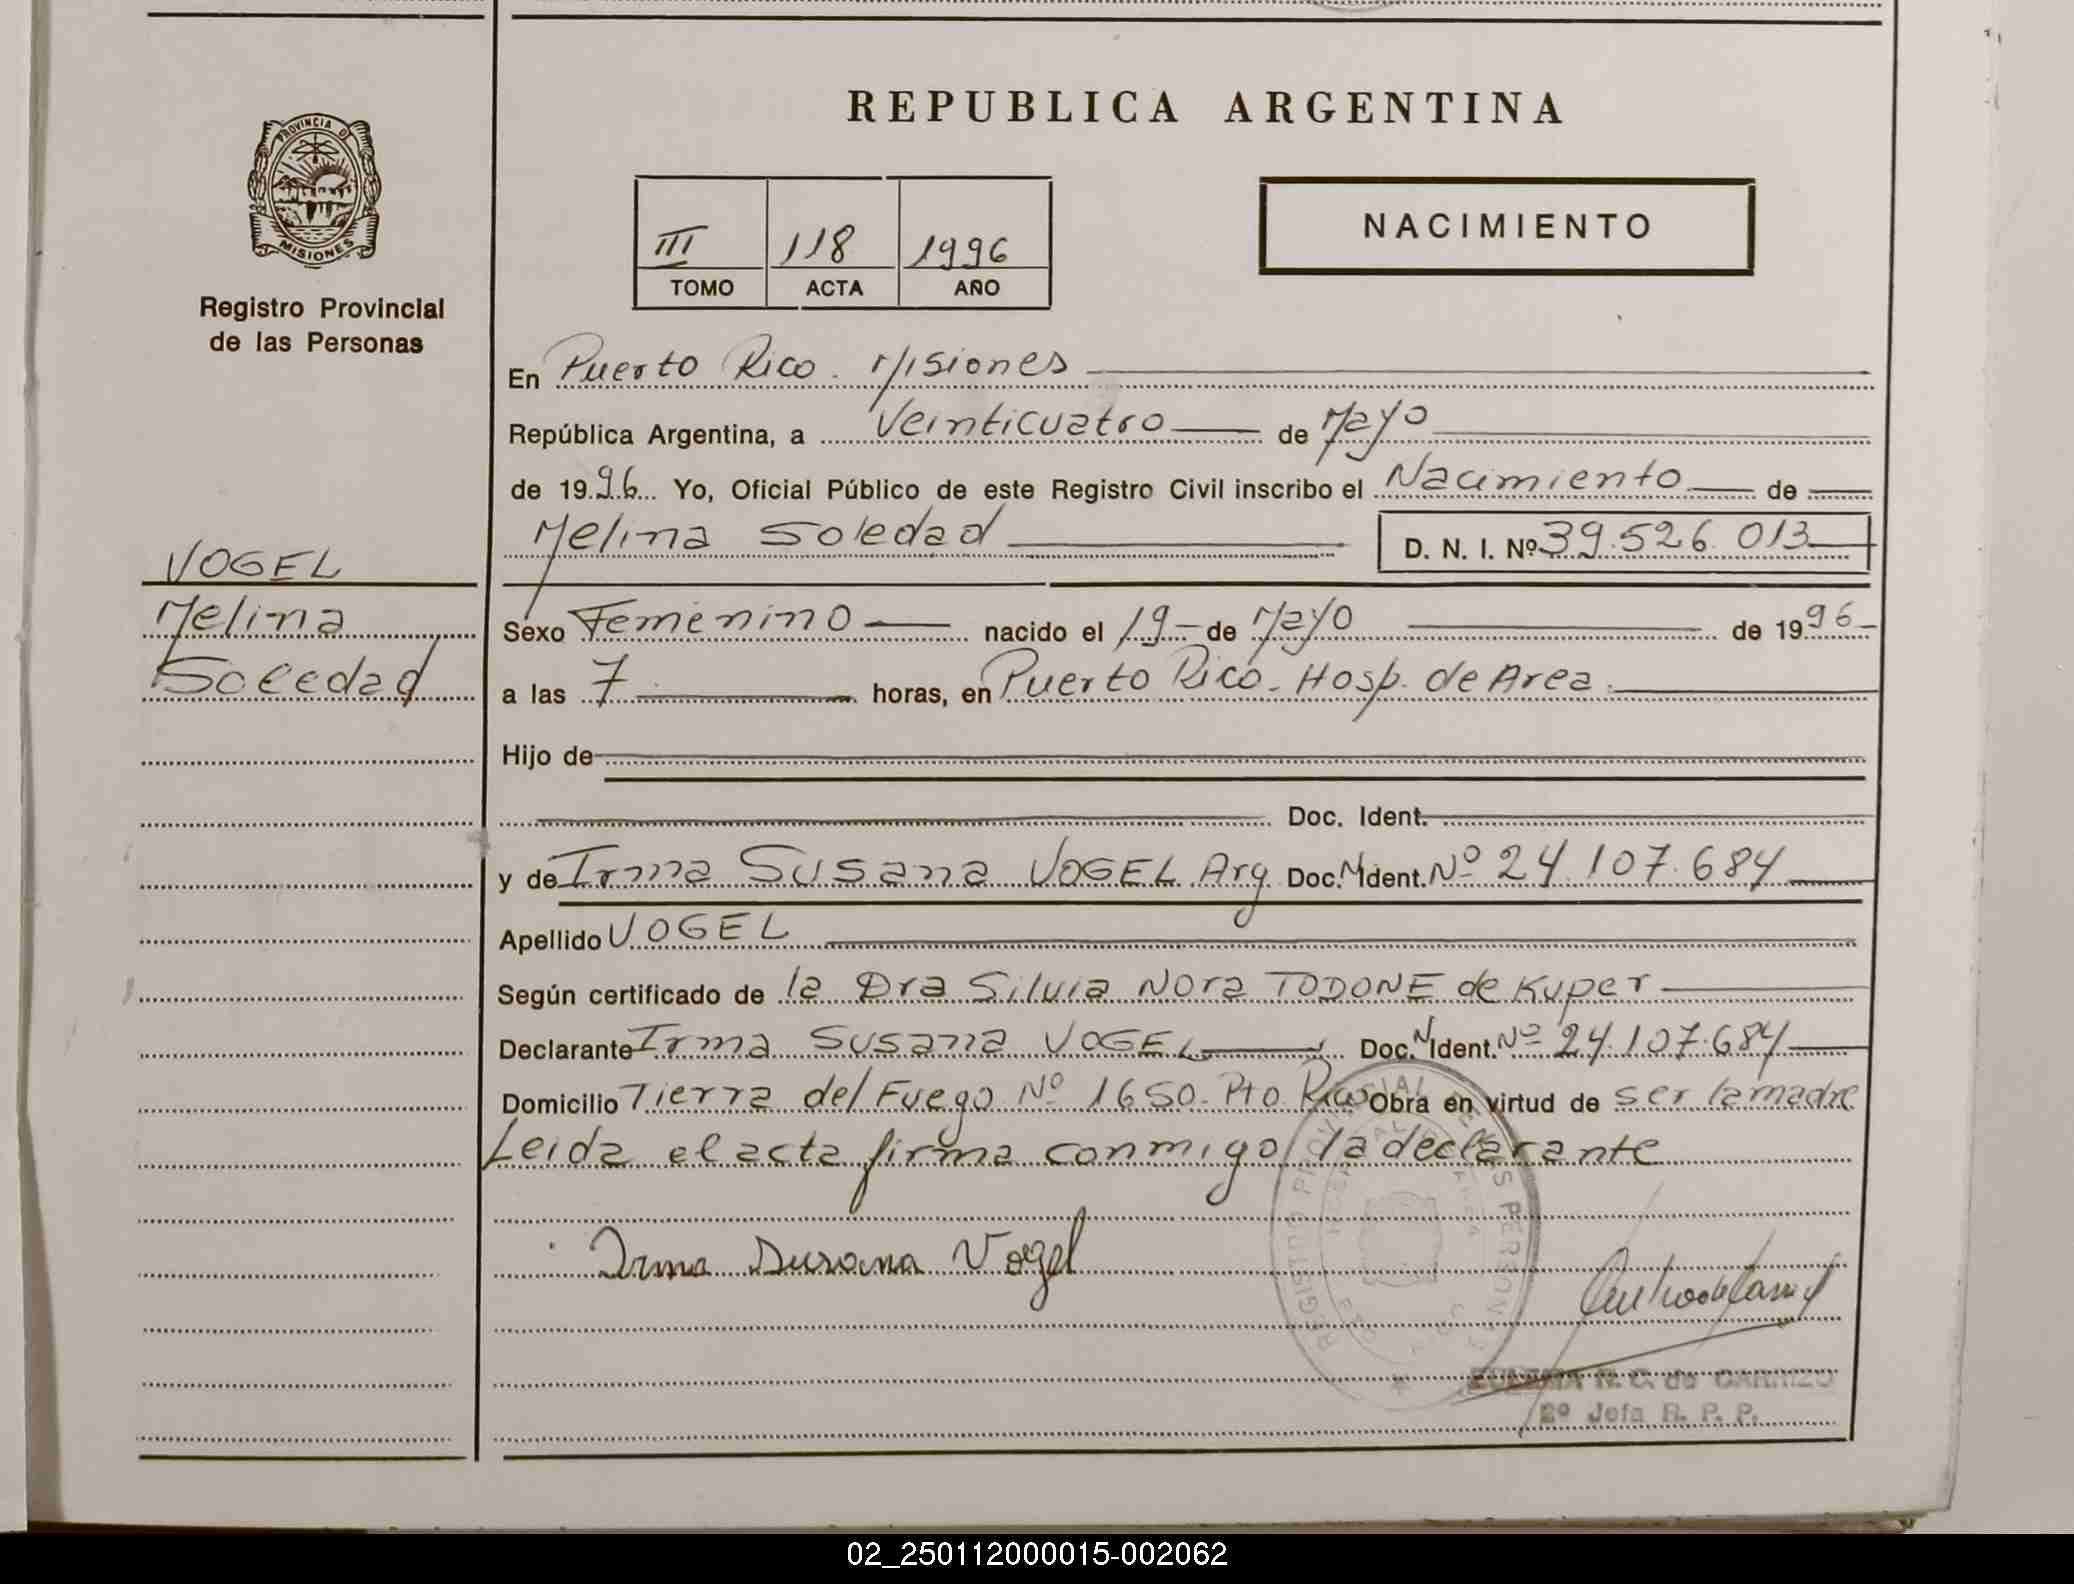 REPUBLICA ARGENTINA
PROVINCIA D
MISIONES
Registro Provincial
de las Personas
III 118 1996
TOMO ACTA AÑO
NACIMIENTO
En Puerto Rico. Misiones
República Argentina, a Veinticuatro de Mayo
de 1996 Yo, Oficial Público de este Registro Civil inscribo el Nacimiento de
Melina Soledad D. N. I. Nº 39.526.013
VOGEL
Melina
Soledad
Sexo Femenino nacido el 19 de Mayo de 1996
a las 7 horas, en Puerto Rico. Hosp. de Area.
Hijo de
Doc. Ident.
y de Irma Susana VOGEL Arg Doc. N Ident. Nº 24.107.684
Apellido VOGEL
Según certificado de la Dra Silvia Nora TODONE de Kuper
Declarante Irma Susana VOGEL Doc. N Ident. Nº 24.107.684
Domicilio Tierra del Fuego Nº 1650. Pto Rico Obra en virtud de ser la madre
Leida el acta firma conmigo la declarante
Irma Susana Vogel
REGISTRO PROVINCIAL DE LAS PERSONAS
N. C. de CARRIZO
2º Jefa R. P. P.
02_250112000015-002062